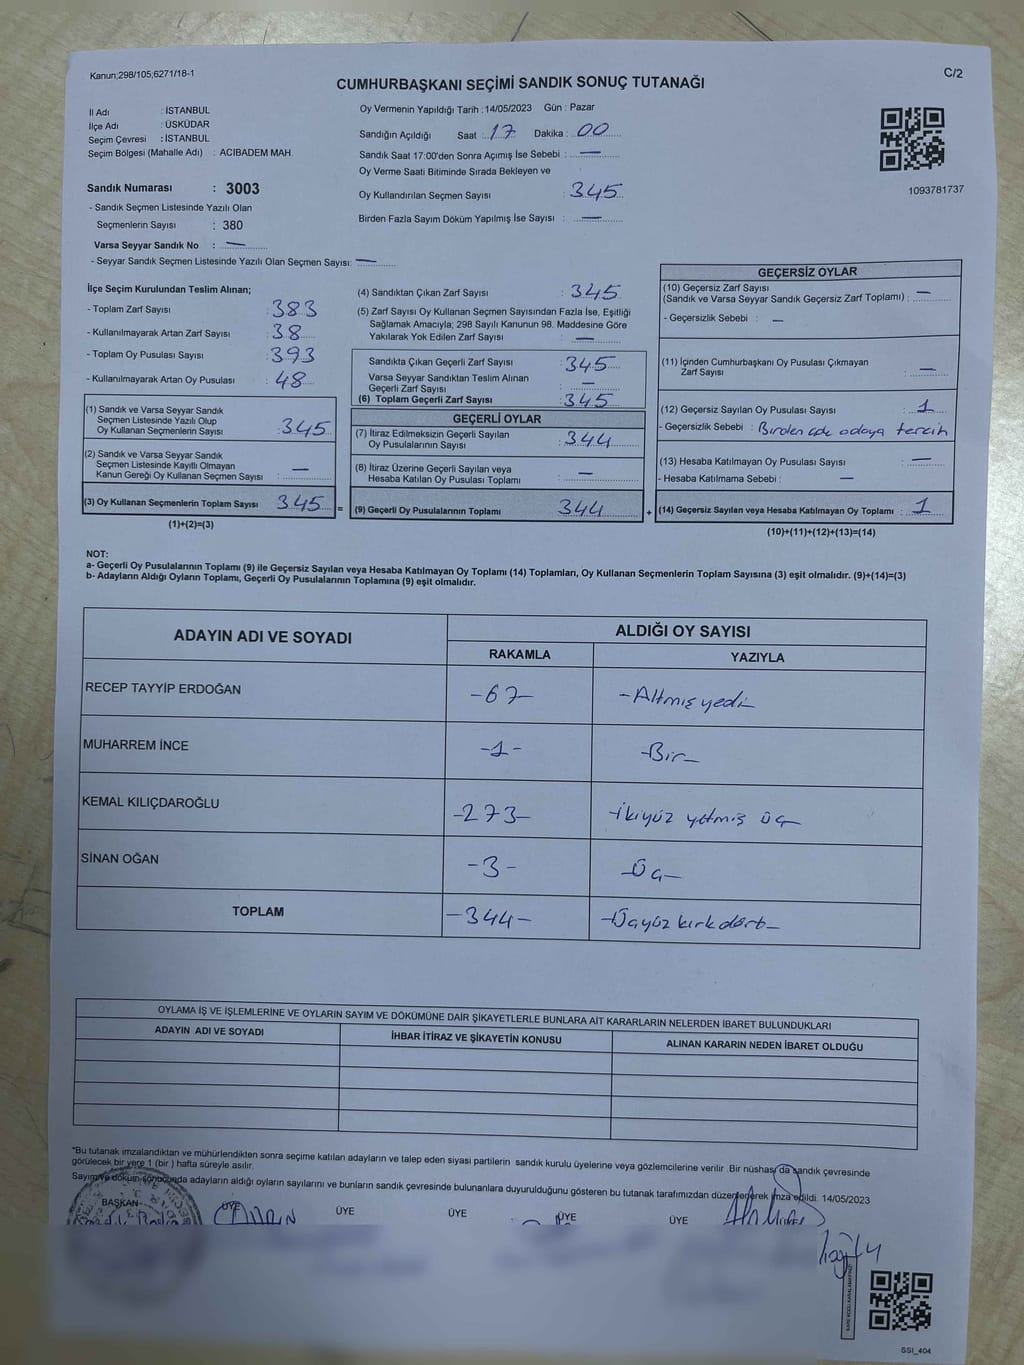 Kanun;298/105;6271/18-1
C/2
CUMHURBAŞKANI SEÇİMİ SANDIK SONUÇ TUTANAĞI
İl Adı : İSTANBUL
İlçe Adı : ÜSKÜDAR
Seçim Çevresi : İSTANBUL
Seçim Bölgesi (Mahalle Adı) : ACIBADEM MAH.
Sandık Numarası : 3003
- Sandık Seçmen Listesinde Yazılı Olan
Seçmenlerin Sayısı : 380
Varsa Seyyar Sandık No : —
- Seyyar Sandık Seçmen Listesinde Yazılı Olan Seçmen Sayısı: —
Oy Vermenin Yapıldığı Tarih : 14/05/2023 Gün : Pazar
Sandığın Açıldığı Saat : 17 Dakika : 00
Sandık Saat 17:00'den Sonra Açımış İse Sebebi : —
Oy Verme Saati Bitiminde Sırada Bekleyen ve
Oy Kullandırılan Seçmen Sayısı : 345
Birden Fazla Sayım Döküm Yapılmış İse Sayısı : —
1093781737
İlçe Seçim Kurulundan Teslim Alınan;
- Toplam Zarf Sayısı : 383
- Kullanılmayarak Artan Zarf Sayısı : 38
- Toplam Oy Pusulası Sayısı : 393
- Kullanılmayarak Artan Oy Pusulası : 48
(1) Sandık ve Varsa Seyyar Sandık
Seçmen Listesinde Yazılı Olup
Oy Kullanan Seçmenlerin Sayısı : 345
(2) Sandık ve Varsa Seyyar Sandık
Seçmen Listesinde Kayıtlı Olmayan
Kanun Gereği Oy Kullanan Seçmen Sayısı : —
(3) Oy Kullanan Seçmenlerin Toplam Sayısı 345
(1)+(2)=(3)
=
(4) Sandıktan Çıkan Zarf Sayısı : 345
(5) Zarf Sayısı Oy Kullanan Seçmen Sayısından Fazla İse, Eşitliği
Sağlamak Amacıyla; 298 Sayılı Kanunun 98. Maddesine Göre
Yakılarak Yok Edilen Zarf Sayısı : —
Sandıkta Çıkan Geçerli Zarf Sayısı : 345
Varsa Seyyar Sandıktan Teslim Alınan
Geçerli Zarf Sayısı : —
(6) Toplam Geçerli Zarf Sayısı : 345
GEÇERLİ OYLAR
(7) İtiraz Edilmeksizin Geçerli Sayılan
Oy Pusulalarının Sayısı : 344
(8) İtiraz Üzerine Geçerli Sayılan veya
Hesaba Katılan Oy Pusulası Toplamı : —
(9) Geçerli Oy Pusulalarının Toplamı 344
+
GEÇERSİZ OYLAR
(10) Geçersiz Zarf Sayısı
(Sandık ve Varsa Seyyar Sandık Geçersiz Zarf Toplamı) : —
- Geçersizlik Sebebi : —
(11) İçinden Cumhurbaşkanı Oy Pusulası Çıkmayan
Zarf Sayısı : —
(12) Geçersiz Sayılan Oy Pusulası Sayısı : 1
- Geçersizlik Sebebi : Birden çok adaya tercih
(13) Hesaba Katılmayan Oy Pusulası Sayısı : —
- Hesaba Katılmama Sebebi : —
(14) Geçersiz Sayılan veya Hesaba Katılmayan Oy Toplamı : 1
(10)+(11)+(12)+(13)=(14)
NOT:
a- Geçerli Oy Pusulalarının Toplamı (9) ile Geçersiz Sayılan veya Hesaba Katılmayan Oy Toplamı (14) Toplamları, Oy Kullanan Seçmenlerin Toplam Sayısına (3) eşit olmalıdır. (9)+(14)=(3)
b- Adayların Aldığı Oyların Toplamı, Geçerli Oy Pusulalarının Toplamına (9) eşit olmalıdır.
ADAYIN ADI VE SOYADI ALDIĞI OY SAYISI
RAKAMLA YAZIYLA
RECEP TAYYİP ERDOĞAN -67- -Altmış yedi-
MUHARREM İNCE -1- -Bir-
KEMAL KILIÇDAROĞLU -273- -İkiyüz yetmiş üç-
SİNAN OĞAN -3- -Üç-
TOPLAM -344- -Üçyüz kırk dört-
OYLAMA İŞ VE İŞLEMLERİNE VE OYLARIN SAYIM VE DÖKÜMÜNE DAİR ŞİKAYETLERLE BUNLARA AİT KARARLARIN NELERDEN İBARET BULUNDUKLARI
ADAYIN ADI VE SOYADI İHBAR İTİRAZ VE ŞİKAYETİN KONUSU ALINAN KARARIN NEDEN İBARET OLDUĞU
*Bu tutanak imzalandıktan ve mühürlendikten sonra seçime katılan adayların ve talep eden siyasi partilerin sandık kurulu üyelerine veya gözlemcilerine verilir. Bir nüshası da sandık çevresinde
görülecek bir yere 1 (bir ) hafta süreyle asılır.
Sayım ve döküm sonucunda adayların aldığı oyların sayılarını ve bunların sandık çevresinde bulunanlara duyurulduğunu gösteren bu tutanak tarafımızdan düzenlenerek imza edildi. 14/05/2023
BAŞKAN ÜYE ÜYE ÜYE ÜYE ÜYE
SSI_404